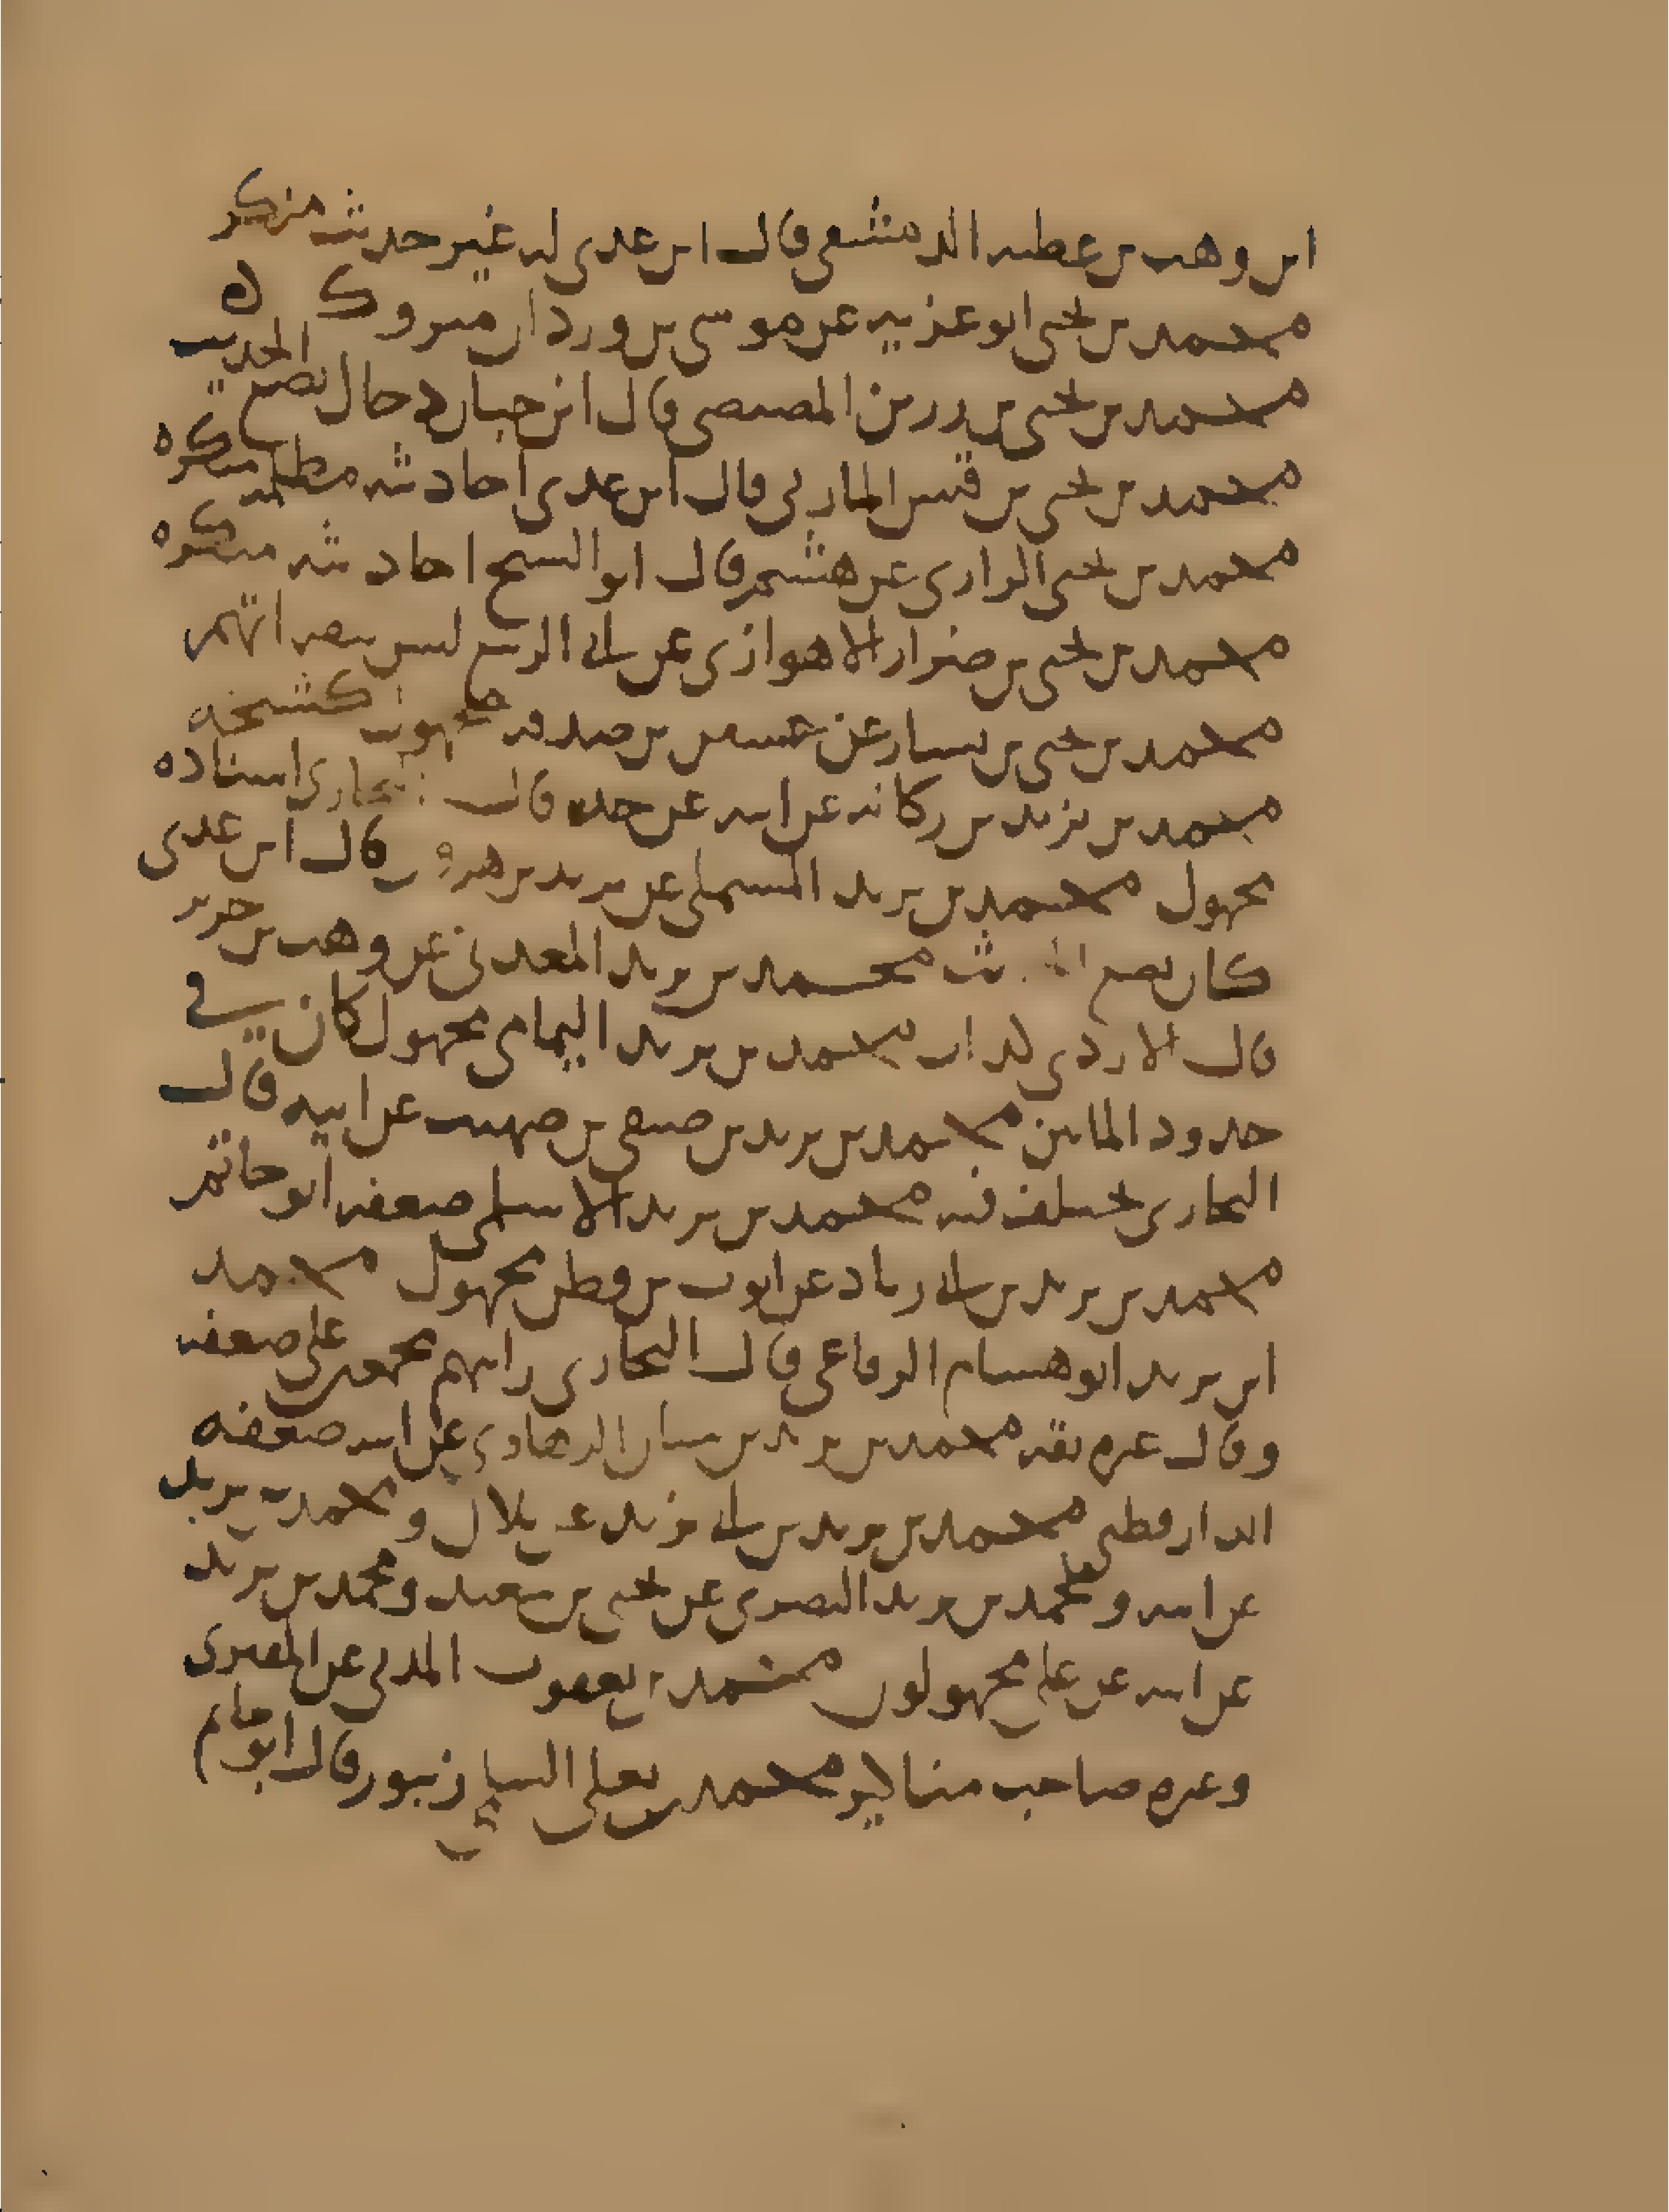 ابن وهب بن عطيه الدمشقي قال ابن عدي له غير حديث منكر
محمد بن يحيى ابو غزيه عن موسى بن وردان متروك ه
محمد بن يحيى بن رزين المصيصي قال ابن حبان دجال يضع الحديث
محمد بن يحيى بن قيس الماربي قال ابن عدي احاديثه مظلمه منكره
محمد بن يحيى الرازي عن هشيم قال ابو الشيخ احاديثه منكره
محمد بن يحيى بن ضرار الاهوازي عن ابي الربيع ليس بثقه اتهم
محمد بن يحيى بن يسار عن حسين بن صدقه مجهول كشيخه
محمد بن يزيد بن ركانه عن ابيه عن جده قال البخاري اسناده
مجهول محمد بن يزيد المستملي عن يزيد بن هرون قال ابن عدي
كان يضع الحديث محمد بن يزيد المعدني عن وهب بن جرير
قال الازدي كذاب محمد بن يزيد اليمامي مجهول كان في
حدود المايتين محمد بن يزيد بن صيفي بن صهيب عن ابيه قال
البخاري يختلف فيه محمد بن يزيد الاسلمي ضعفه ابو حاتم
محمد بن يزيد بن ابي زياد عن ايوب بن قطن مجهول محمد
ابن يزيد ابو هشام الرفاعي قال البخاري رايتهم مجمعين على ضعفه
وقال غيره ثقه محمد بن يزيد بن سنان الرهاوي عن ابيه ضعفه
الدارقطني محمد بن يزيد بن ابي يزيد عن بلال ومحمد بن يزيد
عن ابيه ومحمد بن يزيد البصري عن يحيى بن سعيد ومحمد بن يزيد
عن ابيه عن علي مجهولون محمد بن يعقوب المدني عن المقبري
وغيره صاحب مناكير محمد بن يعلى السلمي زنبور قال ابو حاتم